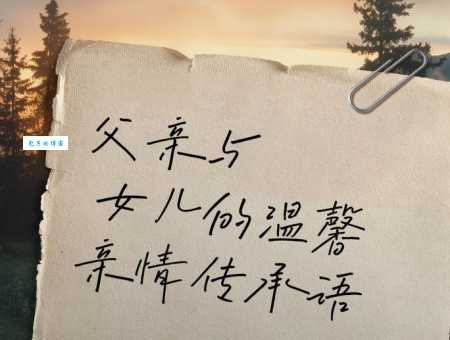 父亲与
女儿的温馨
亲情传承语